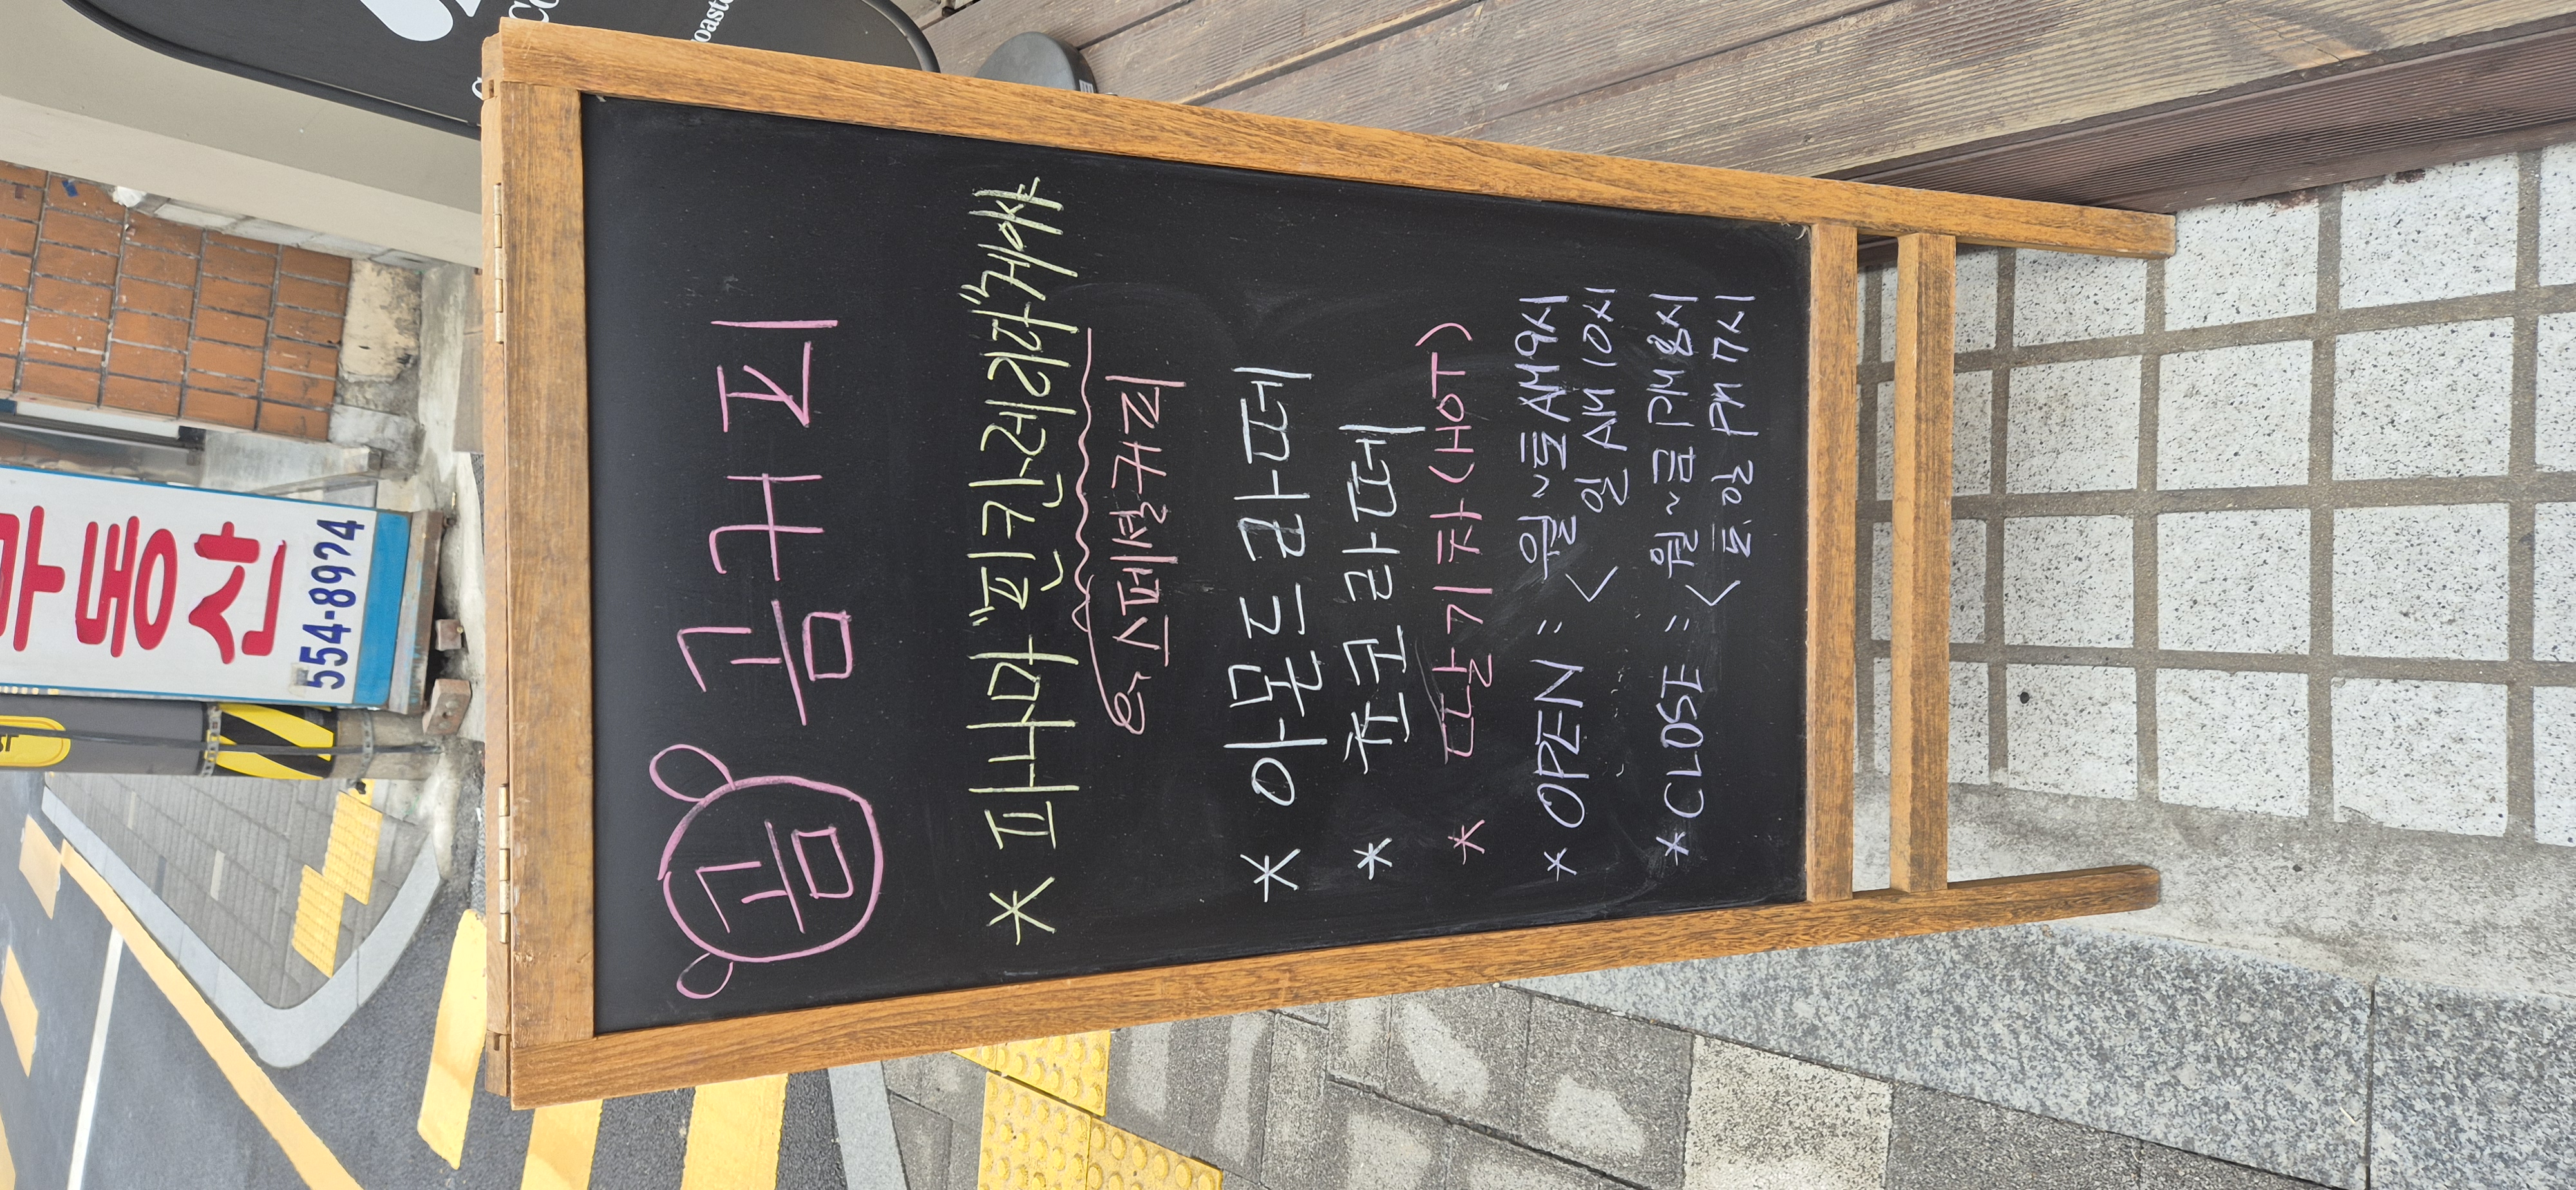 곰 곰커피
* 파나마 "핀카 레리다" 게이샤
용, 스페셜커피
* 아몬드라떼
* 쵸코라떼
* 딸기차 (HOT)
* OPEN : < 월~토 AM 9시
일 AM 10시
* CLOSE : < 월~금 PM 8시
토.일 PM 7시
부동산
554-8924